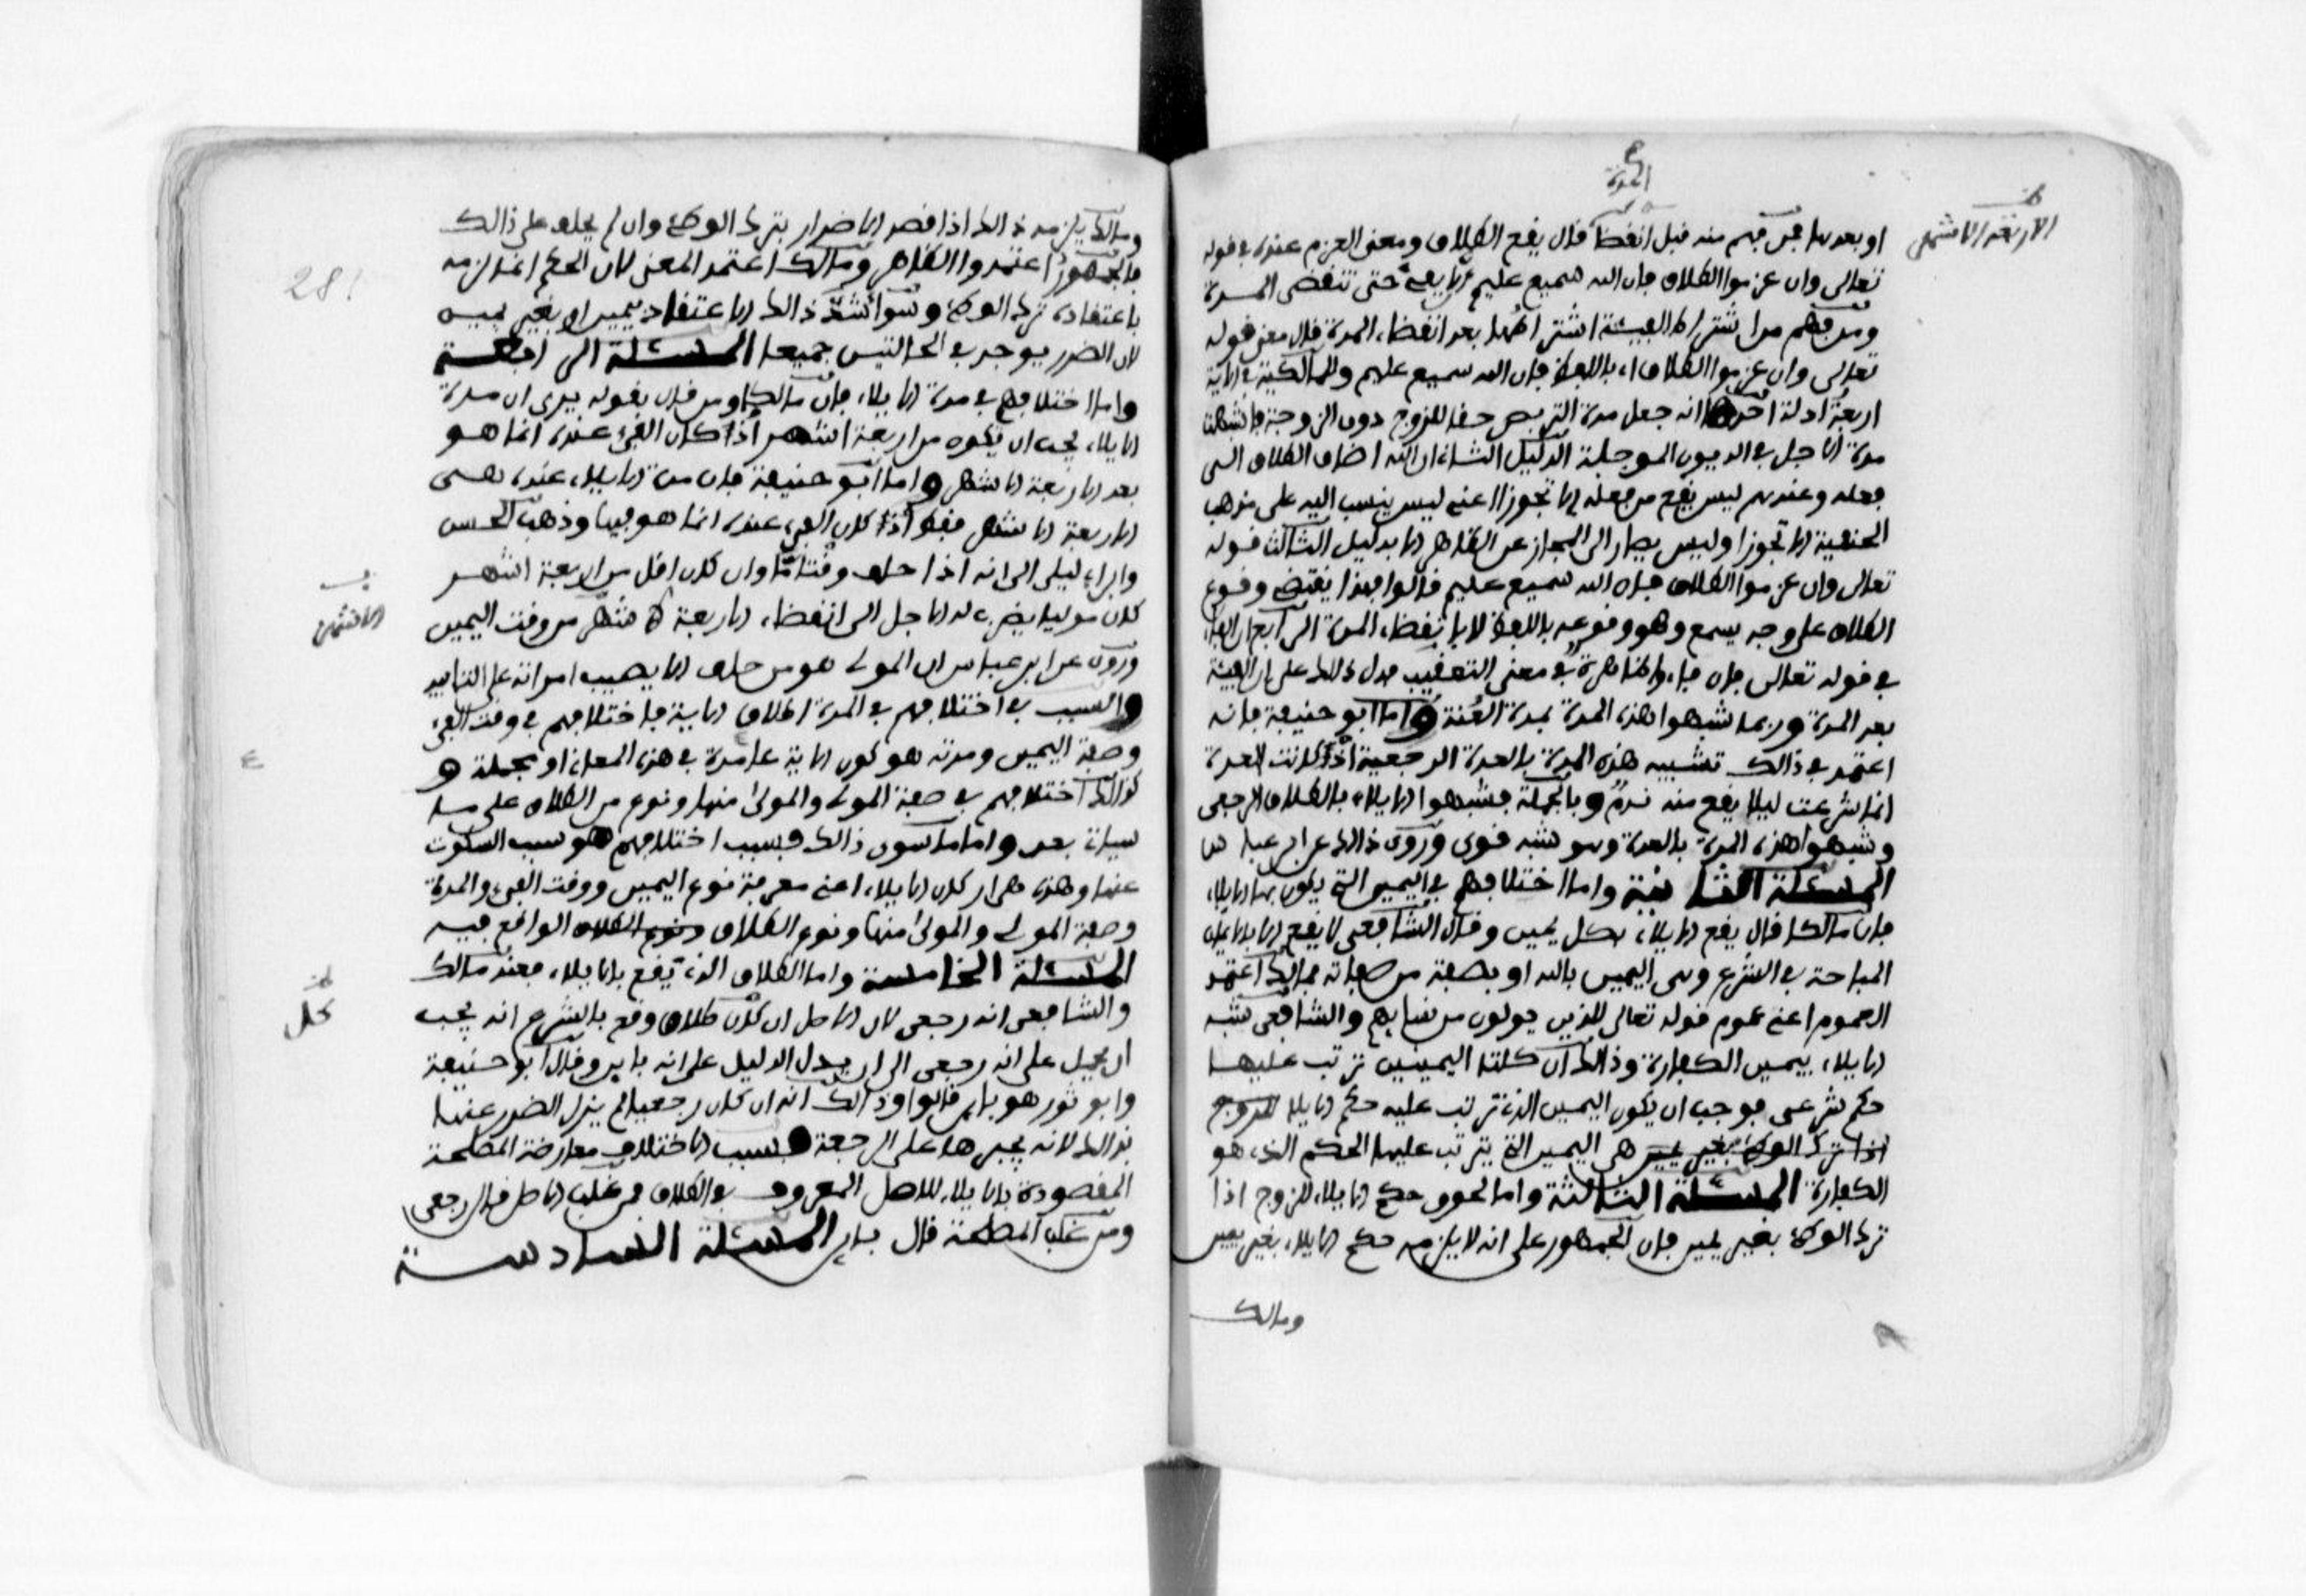 المدة
الاربعة الاشهر
او بعدها فمن فهم منه قبل انقضا قال يقع الطلاق ومعنى العزم عنده في قوله
تعالى وان عزموا الطلاق فان الله سميع عليم ان لا يفيء حتى تنقضى المدة
ومن فهم من اشتراط الفيئة اشتراطها بعد انقضاء المدة قال معنى قوله
تعالى وان عزموا الطلاق اي باللفظ فان الله سميع عليم وللمالكية في الاية
اربعة ادلة احدها انه جعل مدة التربص حقا للزوج دون الزوجة فاشبهت
مدة الاجل في الديون الموجلة الدليل الثاني ان الله اضاف الطلاق الى
فعله وعندهم ليس يقع من فعله الا تجوزا اعني ليس ينسب اليه على مذهب
الحنفية الا تجوزا وليس يصار الى المجاز عن الظاهر الا بدليل الثالث قوله
تعالى وان عزموا الطلاق فان الله سميع عليم قالوا فهذا يقتضي وقوع
الطلاق على وجه يسمع وهو وقوعه باللفظ لا بانقضاء المدة الرابع ان الفاء
في قوله تعالى فان فاءوا ظاهرة في معنى التعقيب فدل ذلك على ان الفيئة
بعد المدة وربما شبهوا هذه المدة بمدة العنة واما ابو حنيفة فانه
اعتمد في ذالك تشبيه هذه المدة بالعدة الرجعية اذ كانت العدة
انما شرعت ليلا يقع منه ندم وبالجملة فشبهوا الايلاء بالطلاق الرجعى
وشبهوا هذه المدة بالعدة وهو شبه قوى وروى ذالك عن ابن عباس
المسئلة الثانية واما اختلافهم في اليمين التي يكون بها الايلاء
فان مالكا قال يقع الايلاء بكل يمين وقال الشافعى لا يقع الا بالايمان
المباحة في الشرع وهي اليمين بالله او بصفة من صفاته فمالك اعتمد
العموم اعني عموم قوله تعالى للذين يولون من نسايهم والشافعى شبه
الايلاء بيمين الكفارة وذالك ان كلتا اليمينين ترتب عليهما
حكم شرعى فوجب ان يكون اليمين الذي ترتب عليه حكم الايلا للزوج
اذا ترك الوطئ بغير يمين هي اليمين التي يترتب عليها الحكم الذي هو
الكفارة المسئلة الثالثة واما لحوق حكم الايلاء للزوج اذا
ترك الوطئ بغير يمين فان الجمهور على انه لا يلزمه حكم الايلاء بغير يمين
ومالك
281
ومالك يلزمه ذالك اذا قصد الاضرار بترك الوطئ وان لم يحلف على ذالك
فالجمهور اعتمدوا الظاهر ومالك اعتمد المعنى لان الحكم انما لزمه
باعتقاده ترك الوطئ وسوا شد ذالك الاعتقاد بيمين او بغير يمين
لان الضرر يوجد في الحالتين جميعا المسئلة الرابعة
واما اختلافهم في مدة الايلاء فان مالكا ومن قال بقوله يرى ان مدة
الايلاء يجب ان تكون من اربعة اشهر اذ كان الفيء عنده انما هو
بعد الاربعة الاشهر واما ابو حنيفة فان مدة الايلاء عنده هى
الاربعة الاشهر فقط اذ كان الفيء عنده انما هو فيها وذهب الحسن
وابن ابي ليلى الى انه اذا حلف وقتا ما وان كان اقل من اربعة اشهر
كان موليا يضرب له الاجل الى انقضاء الاربعة الاشهر من وقت اليمين
الاشهر
وروى عن ابن عباس ان المولي هو من حلف الا يصيب امراته على التابيد
والسبب في اختلافهم في المدة اطلاق الاية فاختلافهم في وقت الفيء
وصفة اليمين ومدته هو كون الاية عامة في هذه المعاني او مجملة و
كذالك اختلافهم في صفة المولي والمولى منها ونوع من الطلاق على ما
سياتي بعد واما ما سوى ذالك فسبب اختلافهم هو سبب السكوت
عنها وهذه هي اركان الايلاء اعني معرفة نوع اليمين ووقت الفيء والمدة
وصفة المولي والمولى منها ونوع الطلاق الواقع فيه
المسئلة الخامسة واما الطلاق الذي يقع بالايلاء فعند مالك
والشافعى انه رجعى لان الاصل ان كل طلاق وقع بالشرع انه يجب
يحمل
ان يحمل على انه رجعى الى ان يدل الدليل على انه باين وقال ابو حنيفة
وابو ثور هو باين قالوا وذالك انه ان كان رجعيا لم يزل الضرر عنها
بذالك لانه يجبرها على الرجعة فسبب الاختلاف معارضة المصلحة
المقصودة بالايلاء للاصل المعروف في الطلاق فمن غلب الاصل قال رجعى
ومن غلب المصلحة قال باين المسئلة السادسة